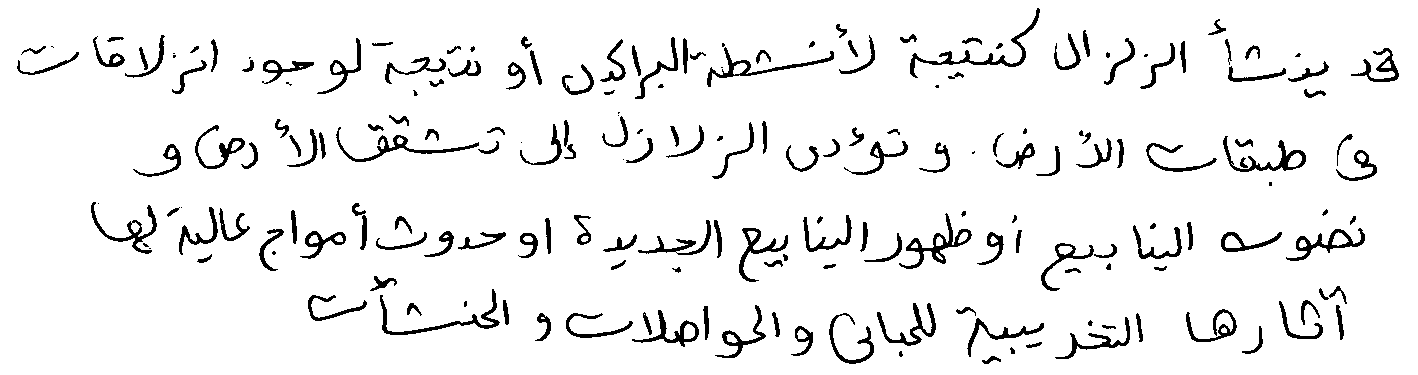 قد ينشأ الزلزال كنتيجة لأنشطة البراكين أو نتيجة لوجود انزلاقات
في طبقات الأرض. و تؤدى الزلازل إلى تشقق الأرض و
نضوب الينابيع أو ظهور الينابيع الجديدة او حدوث أمواج عالية لها
آثارها التخريبية للمبانى والمواصلات و المنشآت